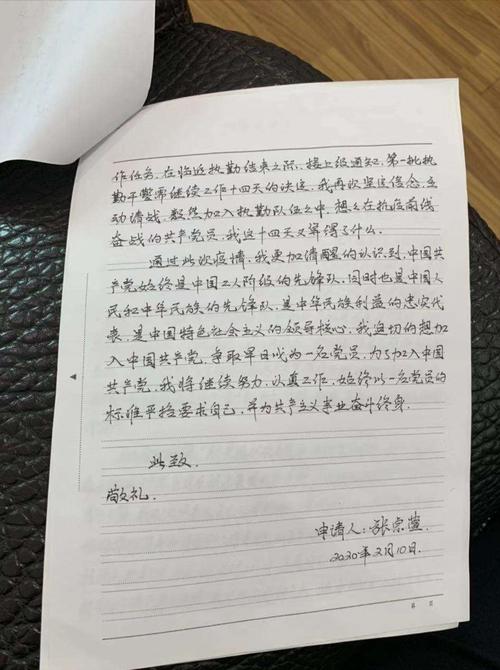 作任务。在临近执勤结束之际，接上级通知，第一批执
勤干警需继续工作十四天的决定，我再次坚定信念，主
动请战，毅然加入执勤队伍之中，想想在抗疫前线
奋战的共产党员，我这十四天又算得了什么。
通过此次疫情，我更加清醒的认识到，中国共
产党始终是中国工人阶级的先锋队，同时也是中国人
民和中华民族的先锋队，是中华民族利益的忠实代
表，是中国特色社会主义的领导核心，我迫切的想加
入中国共产党，争取早日成为一名党员，为了加入中国
共产党，我将继续努力，认真工作，始终以一名党员的
标准严格要求自己，并为共产主义事业奋斗终身。
此致
敬礼
申请人：张崇萱
2020年2月10日
第 页